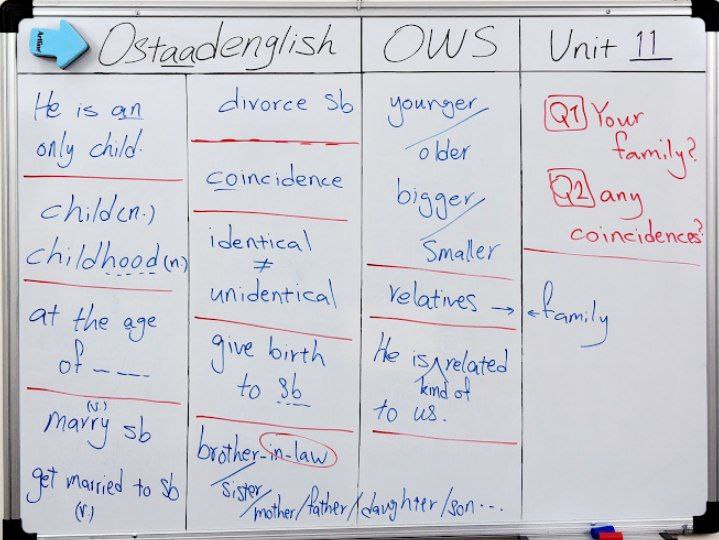 Ostaadenglish
OWS
Unit 11
He is an
only child.
child(n.)
childhood(n.)
at the age
of _ _ _
(v.)
marry sb
get married to sb
(v.)
divorce sb
coincidence
identical
≠
unidentical
give birth
to sb
brother-in-law
sister
mother/father/daughter/son...
younger
older
bigger
smaller
relatives →
He is related
kind of
to us.
Q1 Your
family?
Q2 any
coincidences?
←family